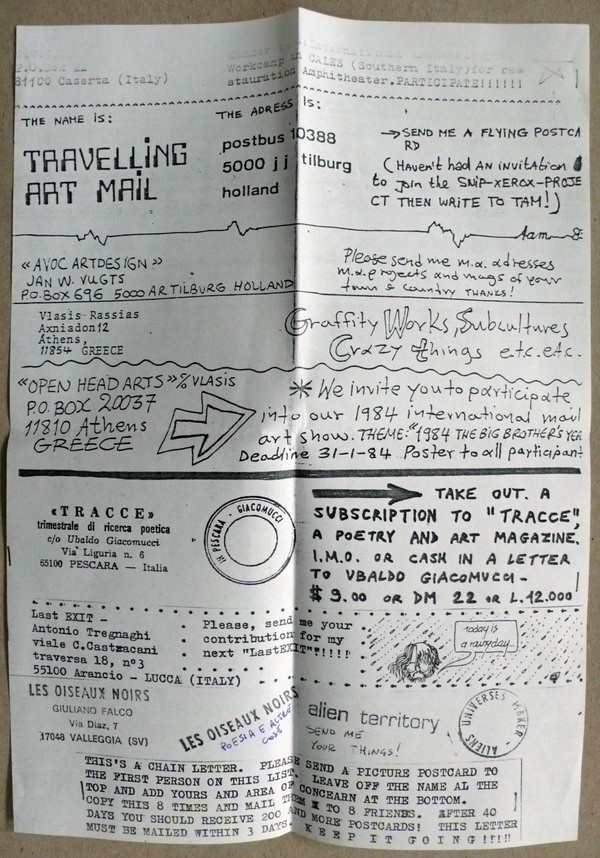 81100 Caserta (Italy)
Workcamp in CALES (Southern Italy)for res
stauration Amphitheater.PARTICIPATE!!!!!!
THE NAME is:
TRAVELLING
ART MAIL
THE ADRESS is:
postbus 10388
5000 j j tilburg
holland
SEND ME A FLYING POSTCA
RD
(Haven't had AN invitation
to join the SNIP-XEROX-PROJE
CT THEN WRITE TO TAM!)
Tam
«AVOC ARTDESIGN»
JAN W. VUGTS
P.O. BOX 696 5000 AR TILBURG HOLLAND
Please send me m.a. adresses
m.a. projects and mags of your
town & country THANKS!
Vlasis Rassias
Axniadon12
Athens,
11854 GREECE
Graffity Works, Subcultures
Crazy things e.t.c. e.t.c.
"OPEN HEAD ARTS" % VLASIS
P.O. BOX 20037
11810 Athens
GREECE
* We invite you to participate
into our 1984 international mail
art show. THEME: "1984 THE BIG BROTHER'S YEA
Deadline 31-1-84 Poster to all participant
«TRACCE»
trimestrale di ricerca poetica
c/o Ubaldo Giacomucci
Via Liguria n. 6
65100 PESCARA — Italia
PESCARA - GIACOMUCCI
TAKE OUT A
SUBSCRIPTION TO "TRACCE",
A POETRY AND ART MAGAZINE.
I.M.O. OR CASH IN A LETTER
TO UBALDO GIACOMUCCI-
$ 9.00 OR DM 22 OR L.12.000
Last EXIT -
Antonio Tregnaghi
viale C.Castracani
traversa 18, n°3
55100 Arancio - LUCCA (ITALY)
Please, send me your
contribution for my
next "LastEXIT"!!!!!
today is
a rainy day...
LES OISEAUX NOIRS
GIULIANO FALCO
Via Diaz, 7
17048 VALLEGGIA (SV)
LES OISEAUX NOIRS
POESIA E ALTRE
COSE
alien territory
SEND ME
YOUR THINGS!
UNIVERSES MAKER - ALIENS
THIS'S A CHAIN LETTER. PLEASE SEND A PICTURE POSTCARD TO
THE FIRST PERSON ON THIS LIST. LEAVE OFF THE NAME AL THE
TOP AND ADD YOURS AND AREA OF CONCEARN AT THE BOTTOM.
COPY THIS 8 TIMES AND MAIL THEM X TO 8 FRIENDS. AFTER 40
DAYS YOU SHOULD RECEIVE 200 AND MORE POSTCARDS! THIS LETTER
MUST BE MAILED WITHIN 3 DAYS. KEEP IT GOING!!!!!